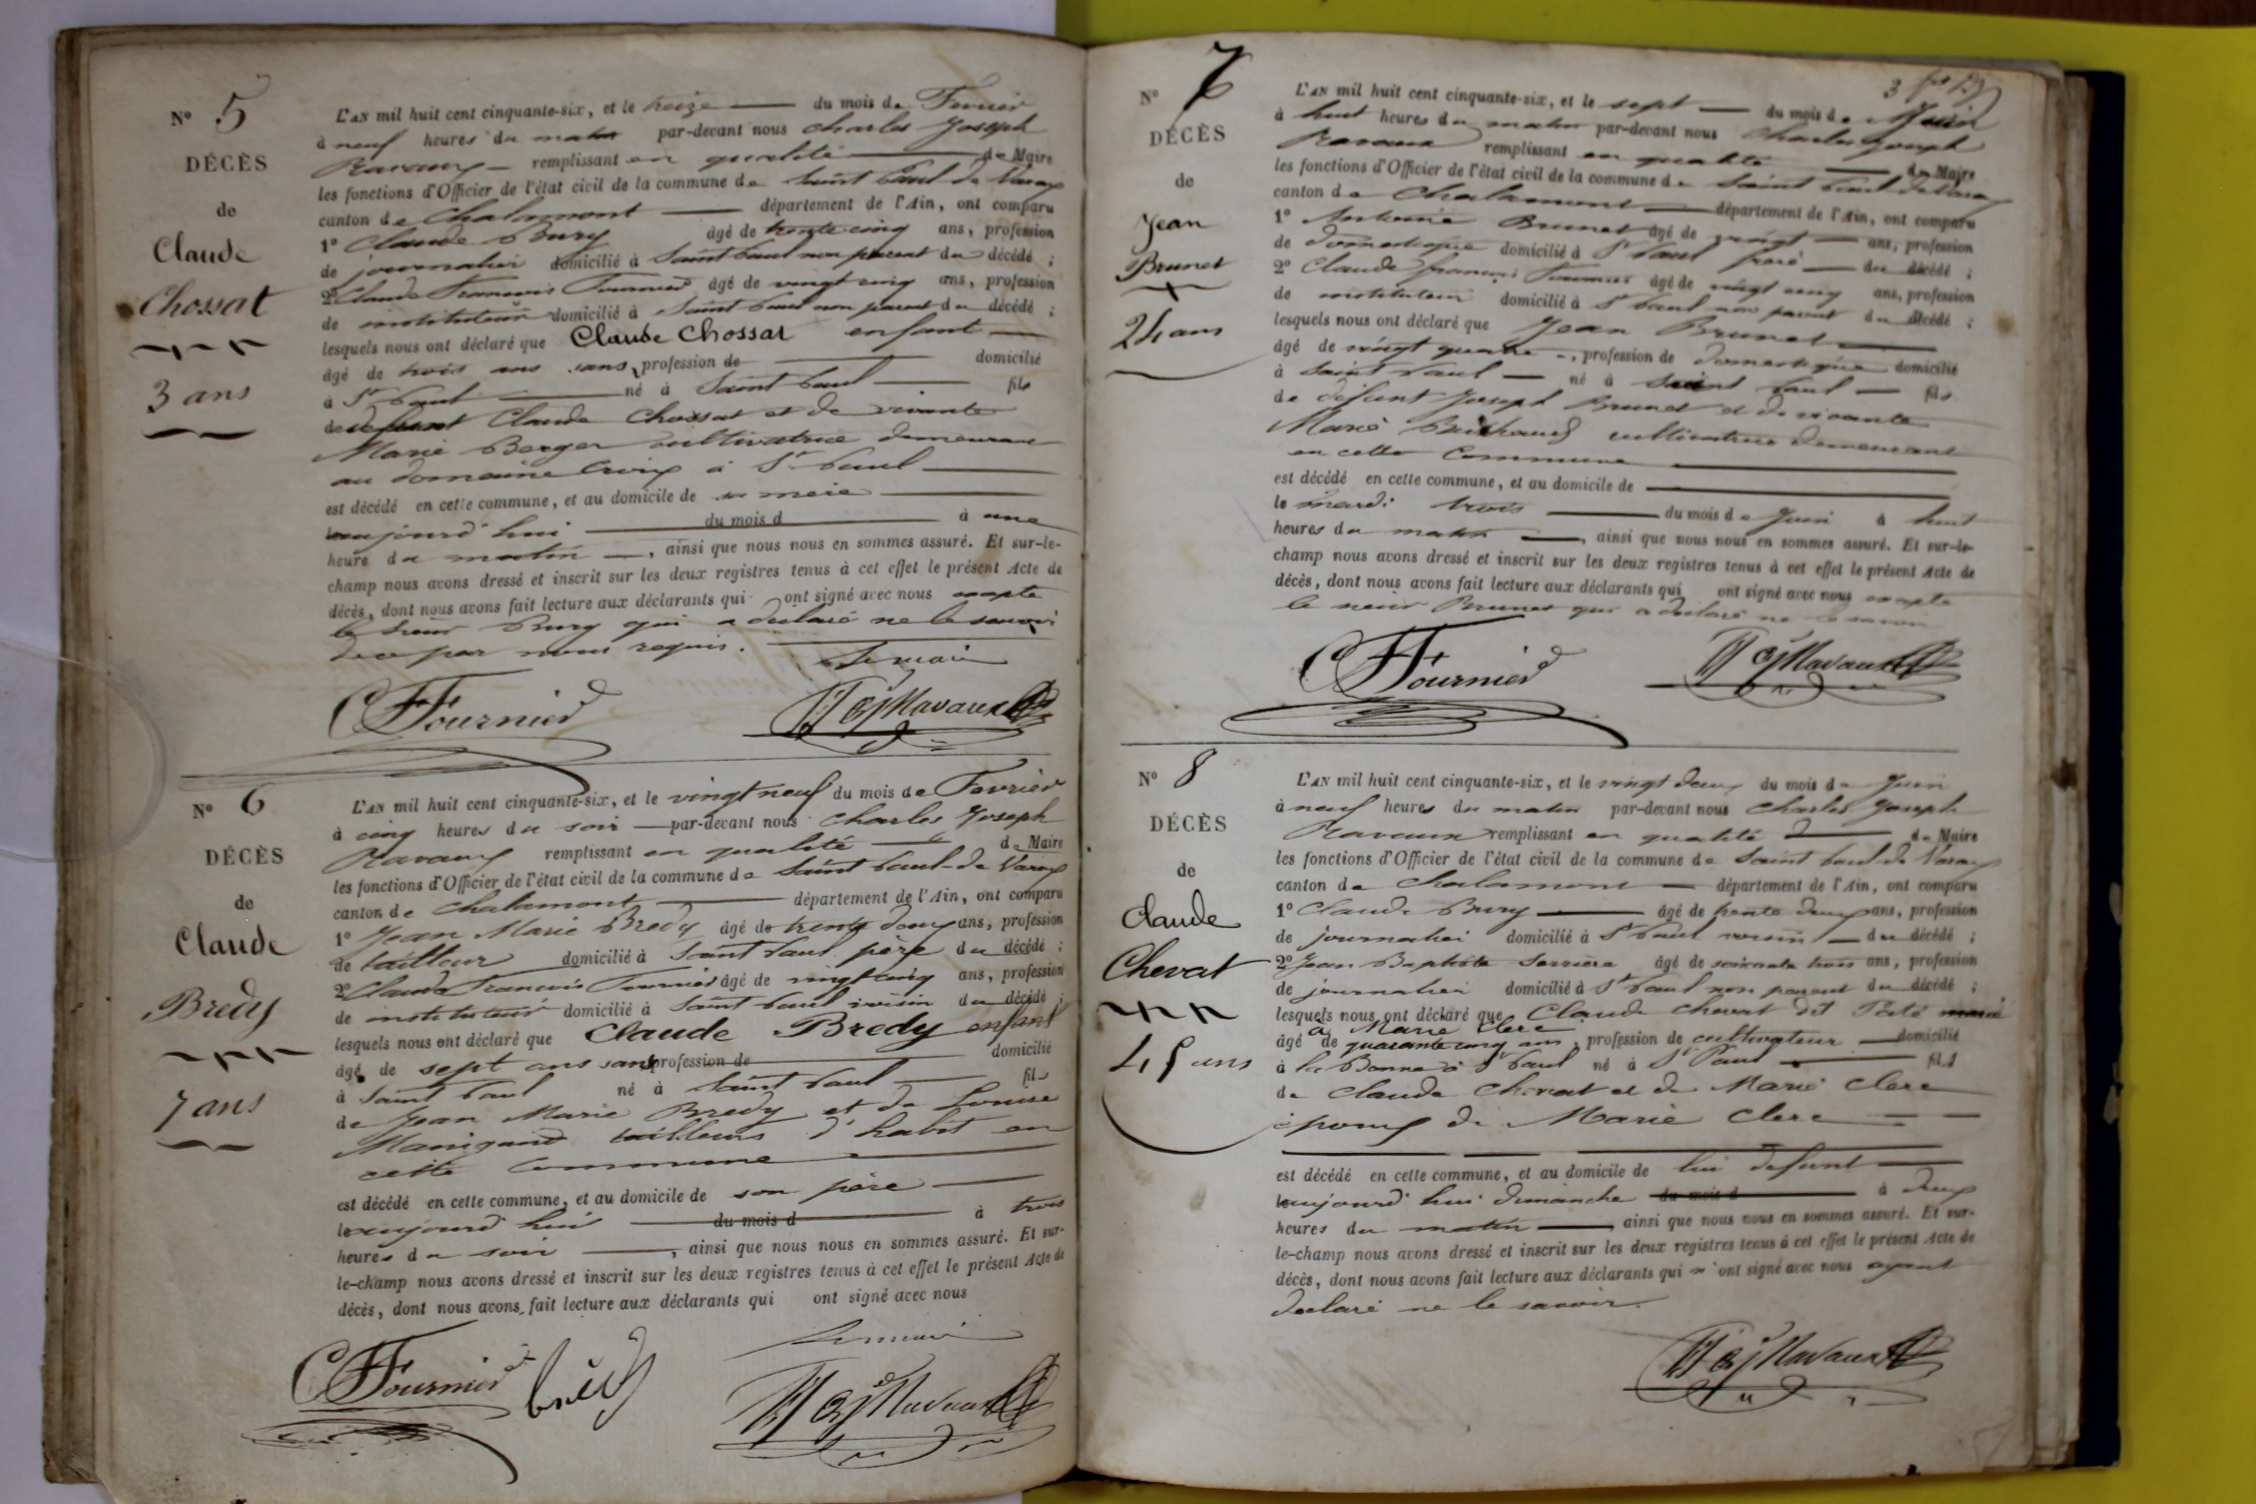 N° 5
DÉCÈS
de
Claude
Chossat
3 ans
L'AN mil huit cent cinquante-six, et le treize du mois de Fevrier
à neuf heures du matin par-devant nous Charles Joseph
Ravaux remplissant en qualité de Maire
les fonctions d'Officier de l'état civil de la commune de Saint Paul de Varax
canton de Chalamont département de l'Ain, ont comparu
1° Claude Bury âgé de trente cinq ans, profession
de journalier domicilié à Saint Paul non parent du décédé ;
2° Claude Francois Fournier âgé de vingt cinq ans, profession
de instituteur domicilié à Saint Paul non parent du décédé ;
lesquels nous ont déclaré que Claude Chossat enfant
âgé de trois ans sans profession de domicilié
à St Paul né à Saint Paul fils
de defunt Claude Chossat et de vivante
Marie Berger cultivatrice demeurant
au domaine Croix à St Paul
est décédé en cette commune, et au domicile de sa mere
le aujourd'hui du mois d à une
heure du matin, ainsi que nous nous en sommes assuré. Et sur-le-
champ nous avons dressé et inscrit sur les deux registres tenus à cet effet le présent Acte de
décès, dont nous avons fait lecture aux déclarants qui ont signé avec nous excepté
le sieur Bury qui a declaré ne le savoir
de ce par nous requis.
Le maire
CFFournier
Ravaux
N° 6
DÉCÈS
de
Claude
Bredy
7 ans
L'AN mil huit cent cinquante-six, et le vingt neuf du mois de Fevrier
à cinq heures du soir par-devant nous Charles Joseph
Ravaux remplissant en qualité de Maire
les fonctions d'Officier de l'état civil de la commune de Saint Paul de Varax
canton de Chalamont département de l'Ain, ont comparu
1° Jean Marie Bredy âgé de trente deux ans, profession
de tailleur domicilié à Saint Paul père du décédé ;
2° Claude Francois Fournier âgé de vingt cinq ans, profession
de instituteur domicilié à Saint Paul voisin du décédé ;
lesquels nous ont déclaré que Claude Bredy enfant
âgé de sept ans sans profession de domicilié
à Saint Paul né à Saint Paul fils
de Jean Marie Bredy et de Louise
Manigand tailleurs d'habit en
cette commune
est décédé en cette commune, et au domicile de son père
le aujourd'hui du mois d à trois
heures du soir, ainsi que nous nous en sommes assuré. Et sur-
le-champ nous avons dressé et inscrit sur les deux registres tenus à cet effet le présent Acte de
décès, dont nous avons fait lecture aux déclarants qui ont signé avec nous
Le maire
CFFournier brédy Ravaux
3
N° 7
DÉCÈS
de
Jean
Brunet
24 ans
L'AN mil huit cent cinquante-six, et le sept du mois de Juin
à huit heures du matin par-devant nous Charles Joseph
Ravaux remplissant en qualité de Maire
les fonctions d'Officier de l'état civil de la commune de Saint Paul de Varax
canton de Chalamont département de l'Ain, ont comparu
1° Antoine Brunet âgé de vingt ans, profession
de domestique domicilié à St Paul frère du décédé ;
2° Claude francois Fournier âgé de vingt cinq ans, profession
de instituteur domicilié à St Paul non parent du décédé ;
lesquels nous ont déclaré que Jean Brunet
âgé de vingt quatre, profession de domestique domicilié
à Saint Paul né à Saint Paul fils
de défunt Joseph Brunet et de vivante
Marie cultivatrice demeurant
en cette commune
est décédé en cette commune, et au domicile de
le mardi trois du mois de Juin à huit
heures du matin, ainsi que nous nous en sommes assuré. Et sur-le-
champ nous avons dressé et inscrit sur les deux registres tenus à cet effet le présent Acte de
décès, dont nous avons fait lecture aux déclarants qui ont signé avec nous excepté
le sieur Brunet qui a declaré ne le savoir
CFFournier Ravaux
N° 8
DÉCÈS
de
Claude
Chevat
45 ans
L'AN mil huit cent cinquante-six, et le vingt deux du mois de Juin
à neuf heures du matin par-devant nous Charles Joseph
Ravaux remplissant en qualité de Maire
les fonctions d'Officier de l'état civil de la commune de Saint Paul de Varax
canton de Chalamont département de l'Ain, ont comparu
1° Claude Bury âgé de trente deux ans, profession
de journalier domicilié à St Paul voisin du décédé ;
2° Jean Baptiste Serrière âgé de soixante trois ans, profession
de journalier domicilié à St Paul non parent du décédé ;
lesquels nous ont déclaré que Claude Chevat dit Teté marié
à Marie Clerc
âgé de quarante cinq ans, profession de cultivateur domicilié
à la Bonne à St Paul né à St Paul fils
de Claude Chevat et de Marie Clerc
époux de Marie Clerc
est décédé en cette commune, et au domicile de lui defunt
le aujourd'hui dimanche du mois d à deux
heures du matin ainsi que nous nous en sommes assuré. Et sur-
le-champ nous avons dressé et inscrit sur les deux registres tenus à cet effet le présent Acte de
décès, dont nous avons fait lecture aux déclarants qui n'ont signé avec nous ayant
declaré ne le savoir.
Ravaux